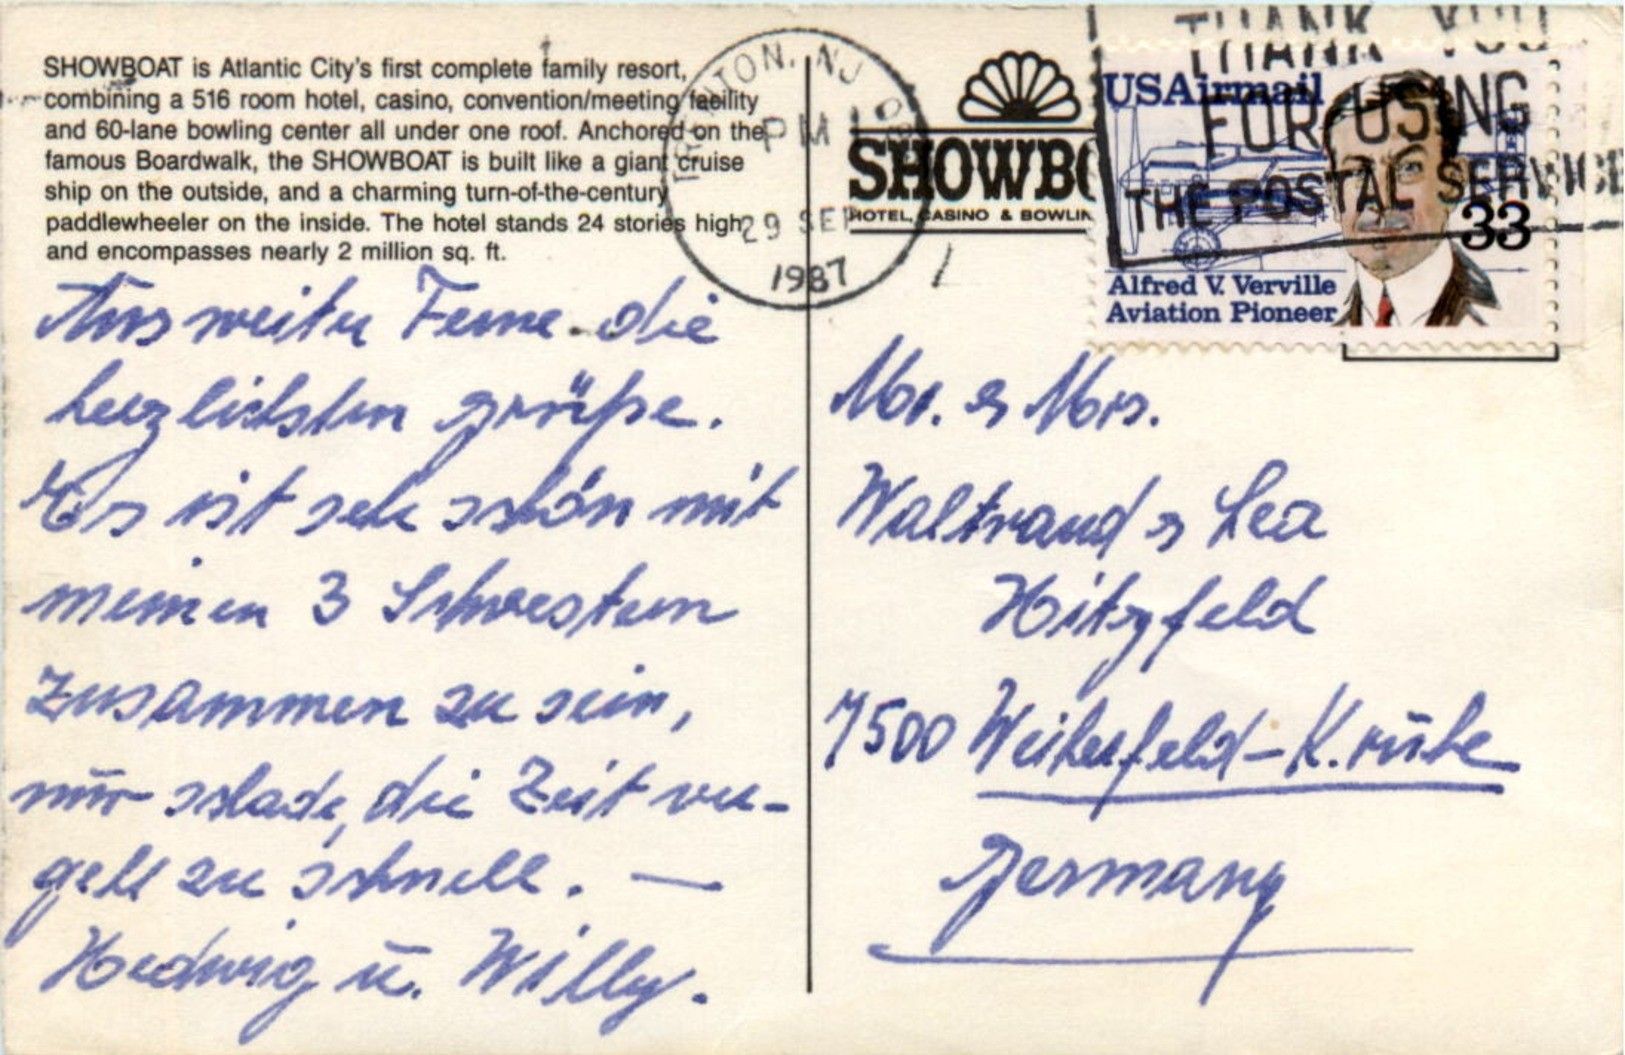 SHOWBOAT is Atlantic City's first complete family resort,
combining a 516 room hotel, casino, convention/meeting facility
and 60-lane bowling center all under one roof. Anchored on the
famous Boardwalk, the SHOWBOAT is built like a giant cruise
ship on the outside, and a charming turn-of-the-century
paddlewheeler on the inside. The hotel stands 24 stories high
and encompasses nearly 2 million sq. ft.
Aus weiter Ferne die
herzlichsten grüße.
Es ist sehr schön mit
meinen 3 Schwestern
zusammen zu sein,
nur schade, die Zeit ver-
geht zu schnell. —
Hedwig u. Willy.
TRENTON, NJ
PM
29 SEP
1987
SHOWBO
HOTEL, CASINO & BOWLIN
THANK YOU
FOR USING
THE POSTAL SERVICE
USAirmail
33
Alfred V. Verville
Aviation Pioneer
Mr. & Mrs.
Waltraud & Lea
Hitzfeld
7500 Weiherfeld-K.ruhe
Germany